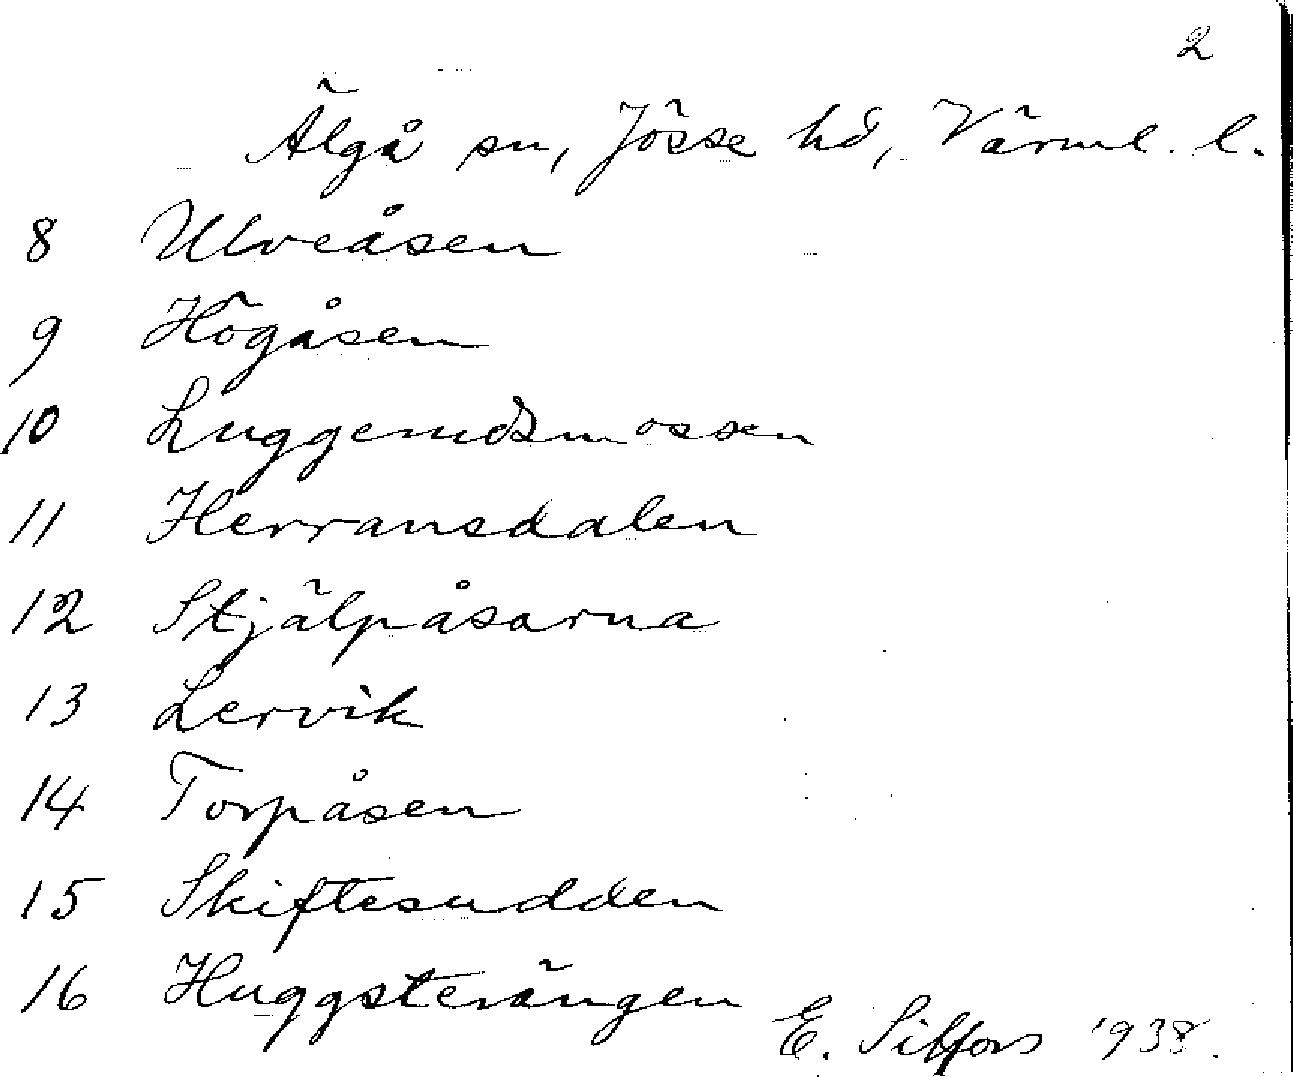 2
Älgå sn, Jösse hd, Värml. l.
8 Ulveåsen
9 Högåsen
10 Luggerudsmossen
11 Herransdalen
12 Stjälpåsarna
13 Lervik
14 Torpåsen
15 Skiftesudden
16 Huggsterängen
E. Sibfors 1938.